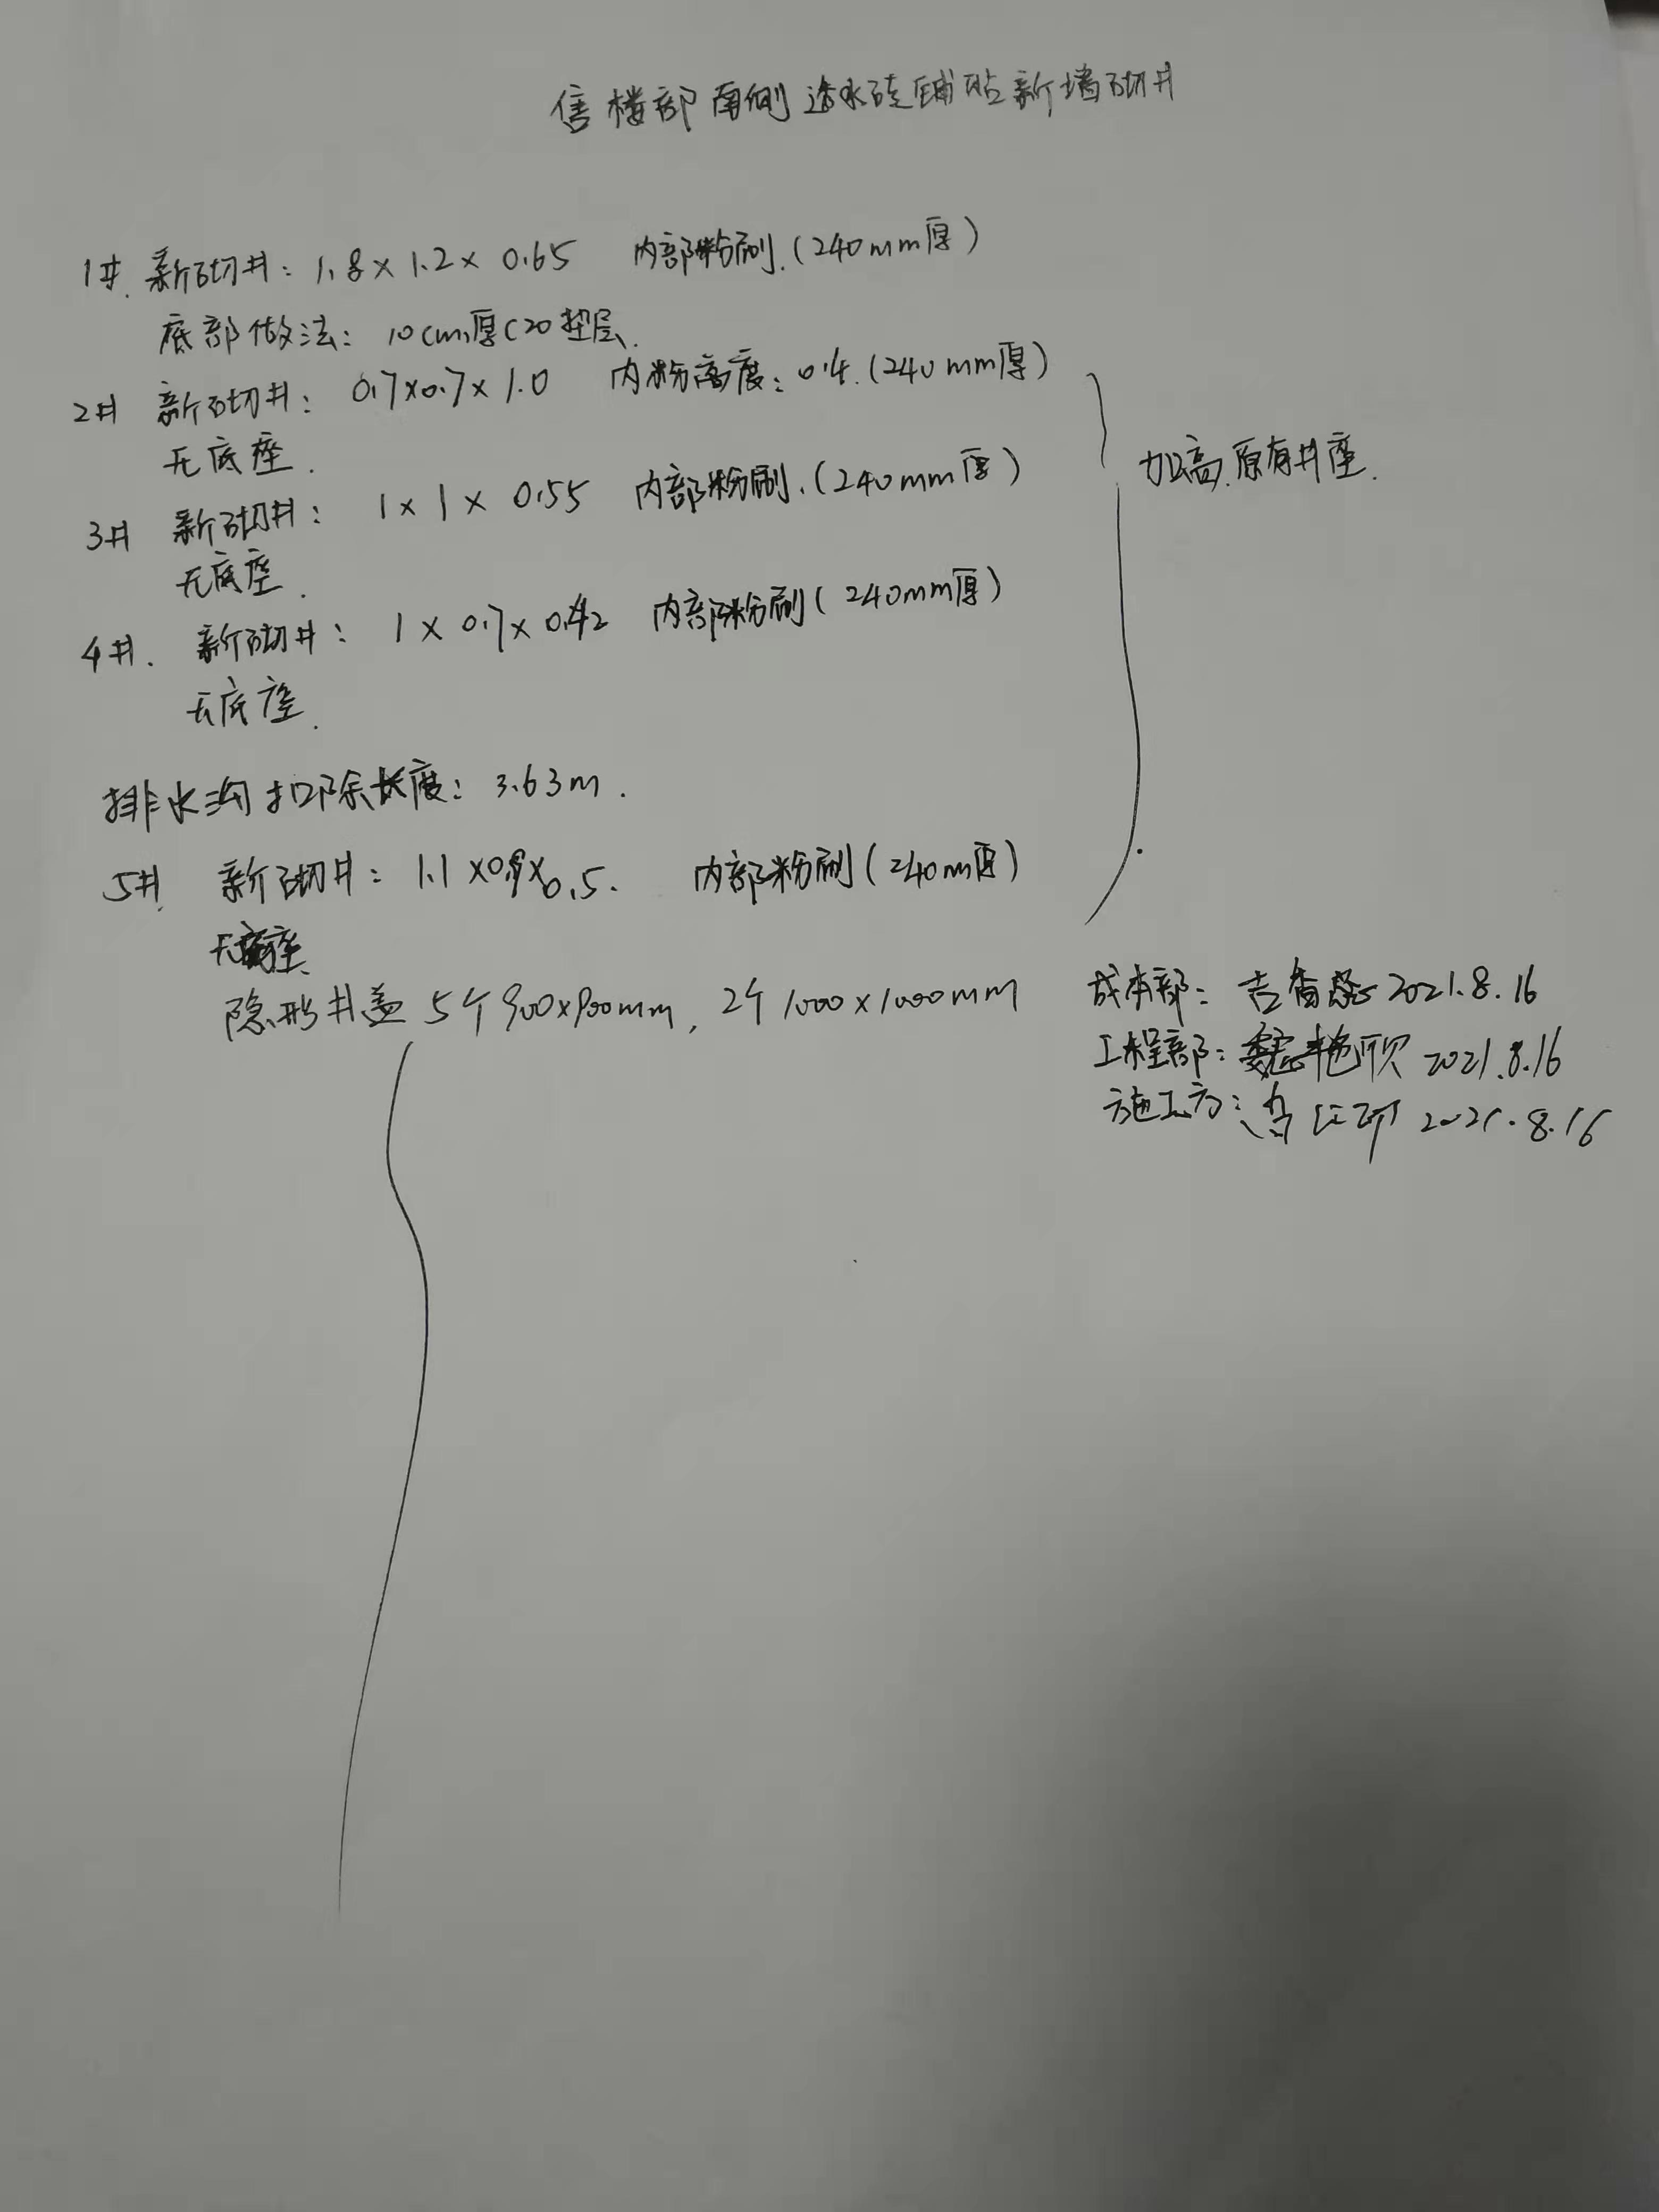 售楼部南侧透水砖铺贴新增砌井
1#. 新砌井: 1.8×1.2×0.65 内部粉刷.(240mm厚)
底部做法: 10cm厚C20垫层.
2# 新砌井: 0.7×0.7×1.0 内粉高度: 0.4.(240mm厚)
无底座.
3# 新砌井: 1×1×0.55 内部粉刷.(240mm厚)
无底座.
加高.原有井座.
4#. 新砌井: 1×0.7×0.42 内部粉刷(240mm厚)
无底座.
排水沟扣除长度: 3.63m.
5# 新砌井: 1.1×0.9×0.5. 内部粉刷(240m厚)
无底座.
隐形井盖5个900×900mm, 2个1000×1000mm
成本部: 2021.8.16
工程部: 魏艳欣 2021.8.16
施工方: 2021.8.16